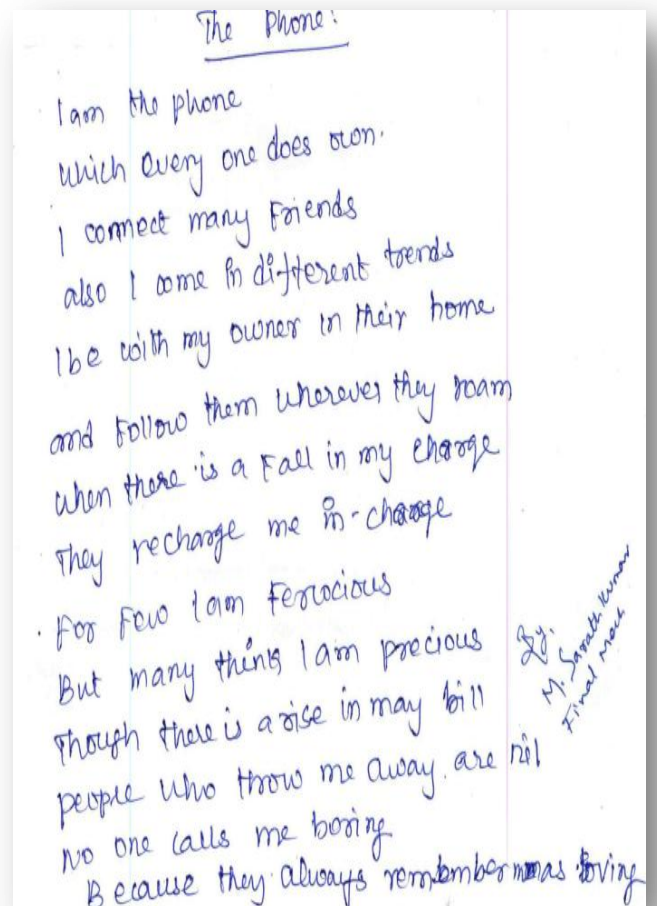 The Phone:
I am the phone
which every one does own.
I connect many Friends
also I come in different trends
I be with my owner in their home
and Follow them wherever they roam
when there is a Fall in my charge
They recharge me in-charge
For Few I am Ferocious
But many thinks I am precious
Though there is a rise in may bill
people who throw me away. are nil
No one calls me boring
Because they always remember as loving
By.
M. Sarath Kumar
Final Mech